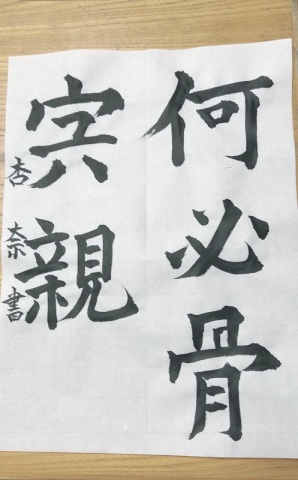 何必骨
宍親
杏奈書